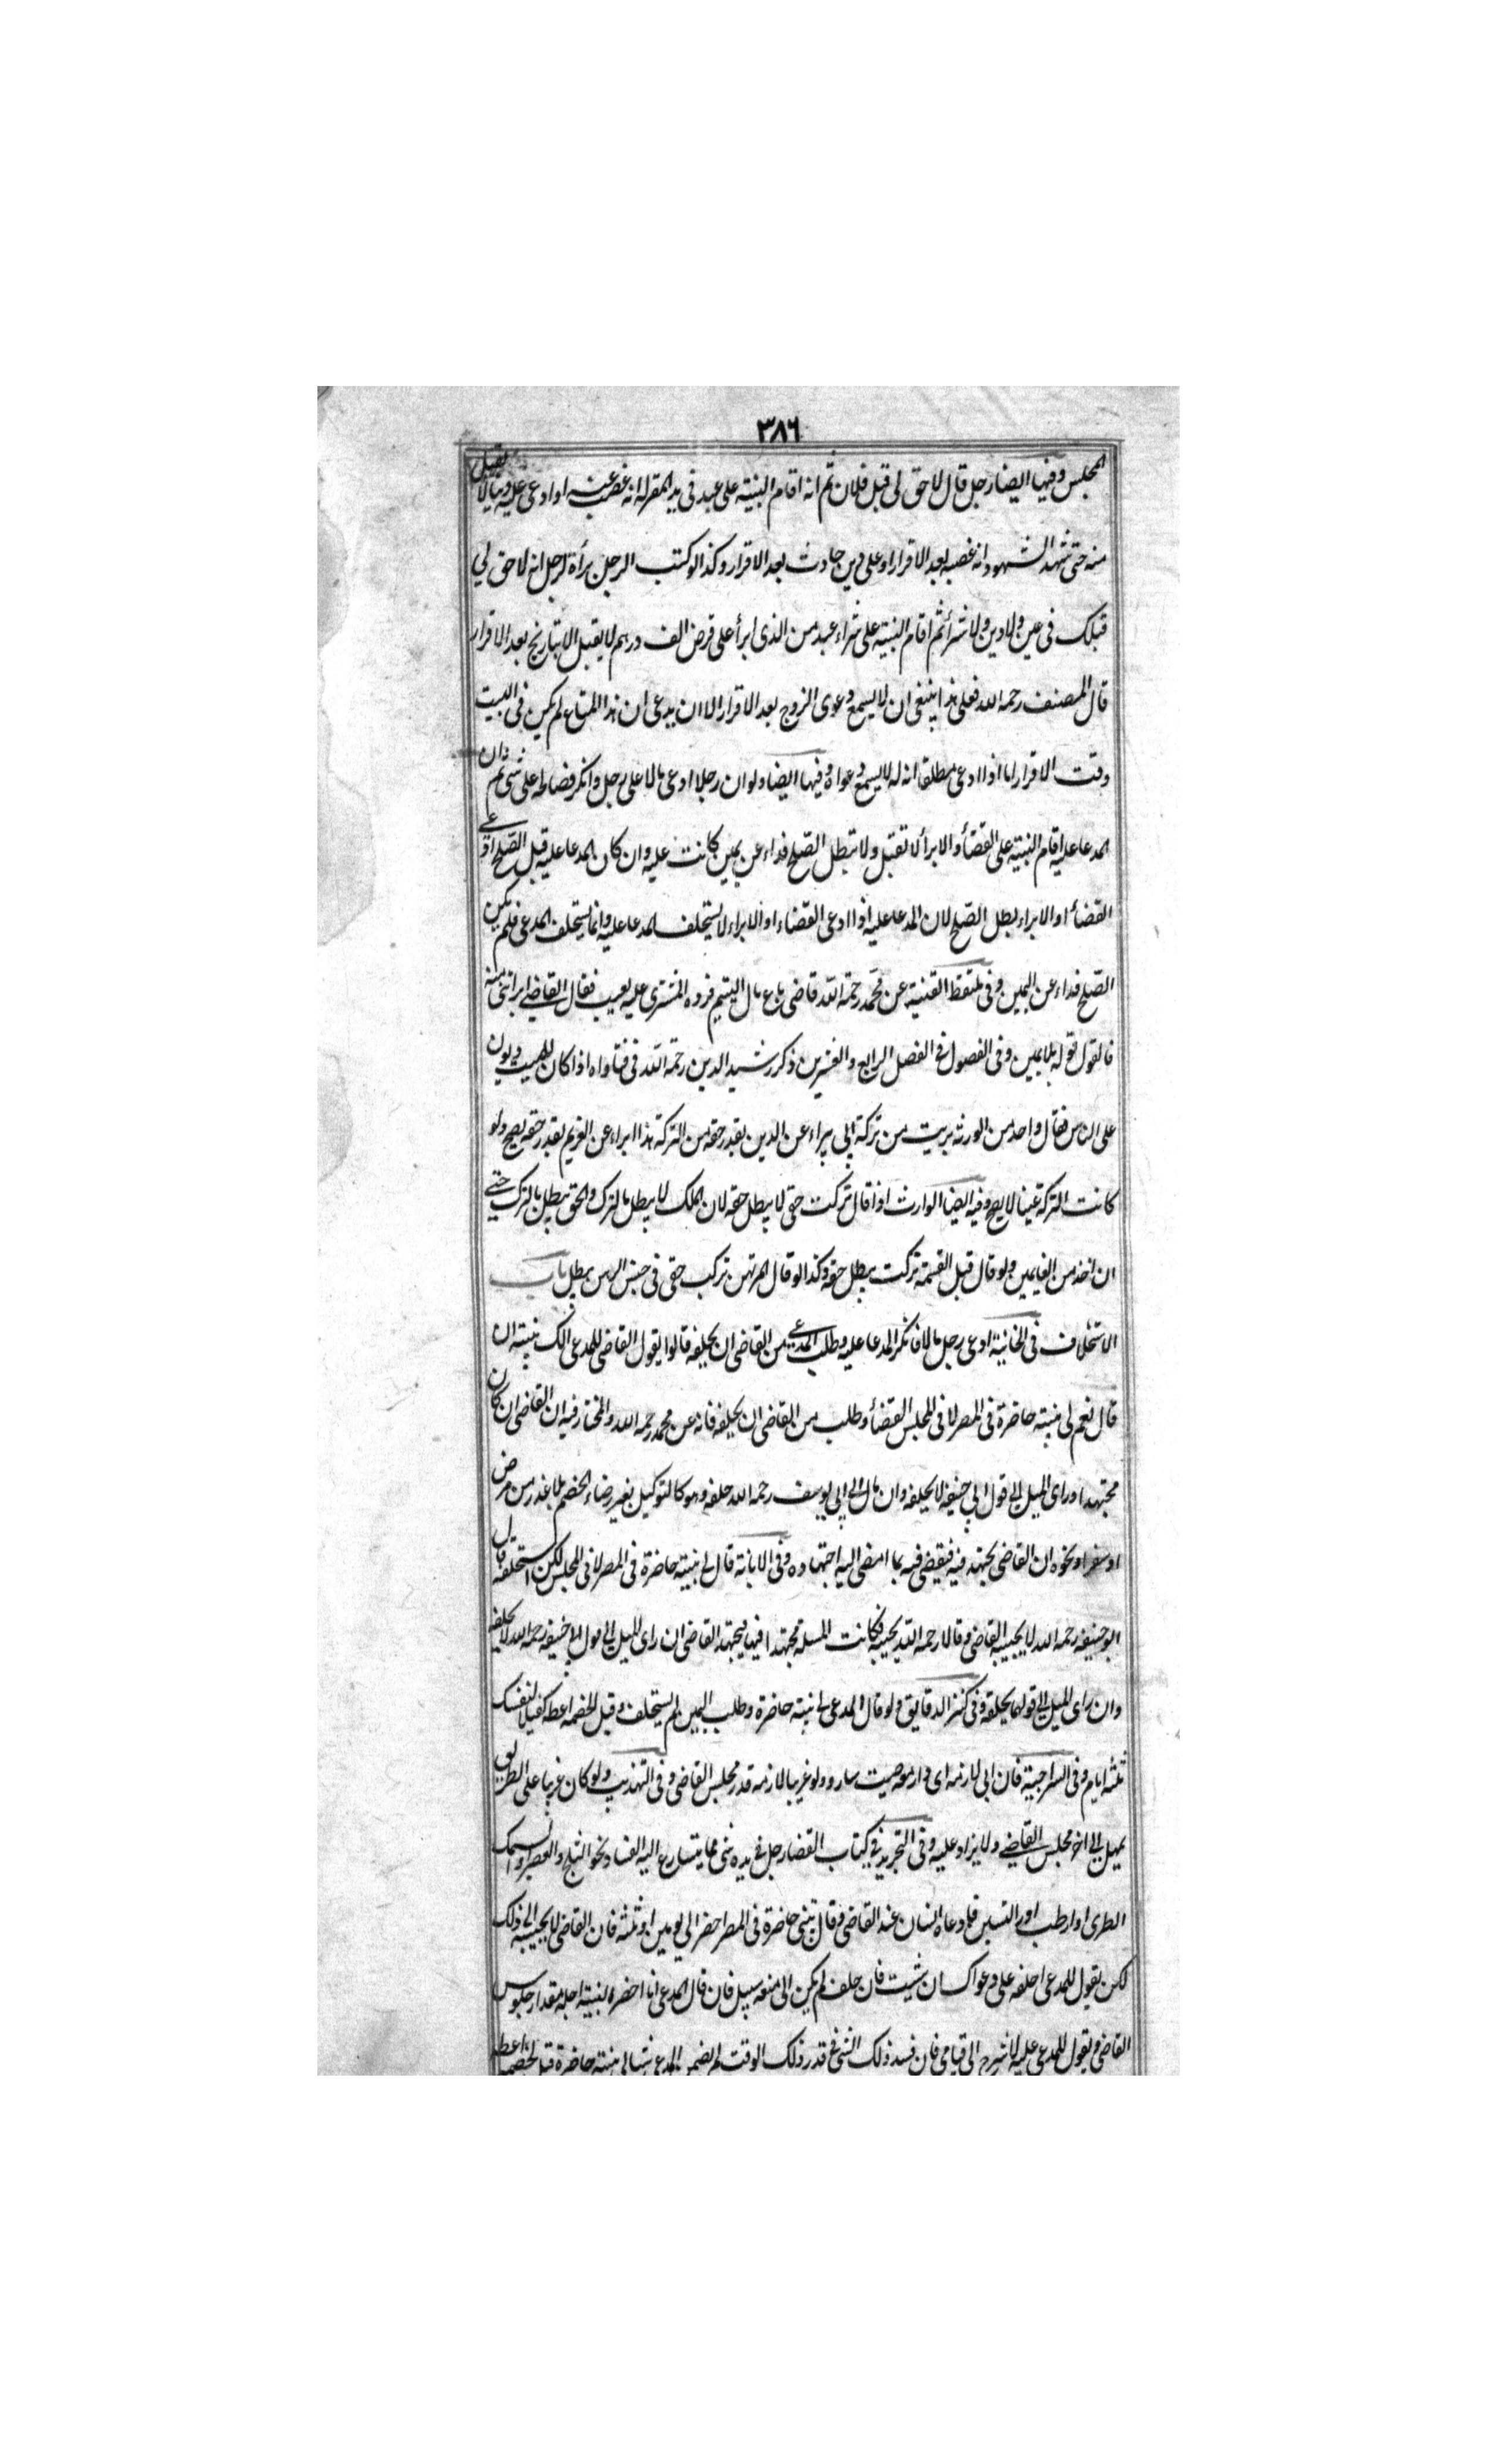 ٣٨٦
المجلس وفيها ايضا رجل قال لا حق لى قبل فلان ثم انه اقام البينة على عبد فى يد المقر له انه غصب عنه او ادعى عليه دينا لا تقبل
منه حتى شهد الشهود انه غصبه بعد الاقرار او على دين حادث بعد الاقرار وكذا لو كتب الرجل برأة لرجل انه لا حق لي
قبلك فى عين ولا دين ولا شراء ثم اقام البينة على شراء عبد من الذى ابرأ على قرض الف درهم لا يقبل الا بتاريخ بعد الاقرار
قال المصنف رحمه الله فعلى هذا ينبغى ان لا يسمع دعوى الزوج بعد الاقرار الا ان يدعى ان هذا المتاع لم يكن فى البيت
وقت الاقرار اما اذا ادعى مطلقا انه له لا يسمع دعواه وفيها ايضا ولو ان رجلا ادعى مالا على رجل وانكر فصالحه على شئ ثم ان
المدعا عليه اقام البينة على القضأ والابرأ لا تقبل ولا تبطل الصلح فداء عن يمين كانت عليه وان كان المدعا عليه قبل الصلح ادعى
القضأ او الابراء بطل الصلح لان المدعا عليه اذا ادعى القضاء او الابراء لا يستحلف المدعا عليه وانما يستحلف المدعى فلم يكن
الصلح فداء عن اليمين وفى ملتقط القنية عن محمد رحمة الله قاضى باع مال اليتيم فرده المشترى عليه بعيب فقال القاضي ابراتنى منه
فالقول قوله بلا يمين وفى الفصول فى الفصل الرابع والعشرين ذكر رشيد الدين رحمة الله فى فتاواه اذا كان للميت ديون
على الناس فقال واحد من الورثة بريت من تركة ابى يبراء عن الدين بقدر حقه من التركة هذا ابراء عن الغريم بقدر حقه يصح ولو
كانت التركة عينا لا يصح وفيه ايضا الوارث اذا قال تركت حقى لا يبطل حقه لان الملك لا يبطل بالترك والحق يبطل بالترك حتى
ان اخذ من الغايمين ولو قال قبل القسمة تركت يبطل حقه وكذا لو قال المرتهن تركت حقى فى حبس الرهن يبطل باب
الاستحلاف فى الخانية ادعى رجل مالا فانكر المدعا عليه وطلب المدعى من القاضى ان يحلفه قالوا يقول القاضى للمدعى الك بينة ان
قال نعم لى بينة حاضرة فى المصر لا فى المجلس القضأ وطلب من القاضى ان يحلفه فانه عن محمد رحمه الله والمختار فيه ان القاضى ان كان
مجتهدا وراى الميل الى قول ابى حنيفة لا يحلفه وان مال الى ابى يوسف رحمه الله حلفه وهو كالتوكيل بغير رضاء الخصم بلا عذر من مرض
او سفر او نحوه ان القاضى يجتهد فيه فيقضى فيه بما امضى اليه اجتهاده وفى الابانة قال لى بينة حاضرة فى المصر لا فى المجلس لكن استحلفه قال
ابو حنيفة رحمه الله لا يجيبه القاضى وقالا رحمه الله يجيبه فكانت المسلة مجتهدا فيها فيجتهد القاضى ان راى الميل الى قول ابى حنيفة رحمه الله لا يحلفه
وان راى الميل الى قولهما يحلفه وفى كنز الدقايق ولو قال المدعى لى بينة حاضرة وطلب اليمين لم يستحلف وقيل لخصمه اعطه كفيلا بنفسك
ثلثه ايام وفى السراجية فان ابى لازمه اى دار معه حيث سار ولو غريبا لازمه قدر مجلس القاضى وفى التهذيب ولو كان غريبا على الطريق
يمهل الى اخر مجلس القاضي ولا يزاد عليه وفى التجريد فى كتاب القضا رجل فى يده شئ مما يتسارع اليه الفساد نحو الثلج والعصير والسمك
الطرى او ارطب اور التين فادعاه انسان عند القاضى وقال بينتى حاضرة فى المصر احضر الى يومين او ثلثه فان القاضى لا يجيبه الى ذلك
لكن يقول للمدعى احلفه على دعواك ان شيت فان حلف لم يكن الى منعه سبيل فان قال المدعى انا احضره لبينة اجله مقدار جلوس
القاضى ويقول للمدعى عليه لا تبرح الى قيامى فان فسد ذلك الشئ فى قدر ذلك الوقت لم يضمن المدعى شيا لى بينة حاضرة قيل لخصمه اعطه